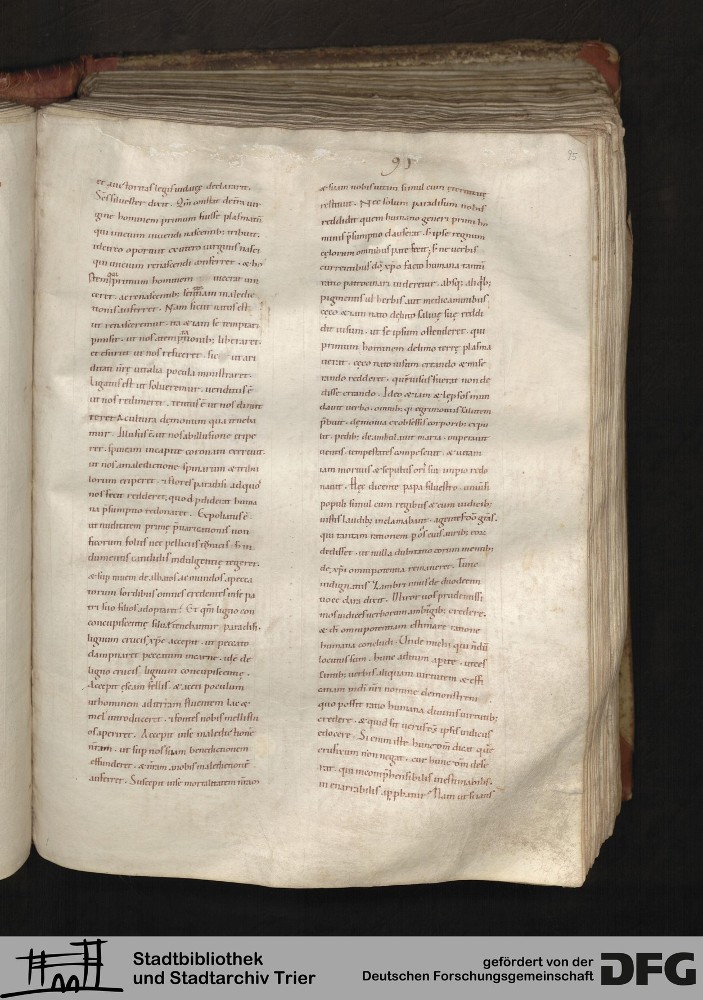 95
95
et auctoritas legis indaugę declararit.
Sc̄s silvester dixit. Qm̄ constat deū ra uir
gine hominem primum fuisse plasmatū
qui initium uiuendi nascentibus tribuit.
idcirco oportuit ex utero uirginis nasci
qui initium renascendi conferret. & ho
primum hominem uicerat uin
ceret. ac renascentib; maledic
tionis auferret. Nam sicut natus est
ut renasceremur. ita & iam se temptari
permisit. ut nos a temptationib; liberaret.
et esuriit ut nos reficeret. sic ut ari
ditati nr̄ę uitalia pocula ministraret.
Ligatus est ut solueremur. uenditus ē
ut nos redimeret. tentus ē ut nos dimit
teret a cultura dęmonum qua teneba
mur. Illusus ē ut nos ab illusione eripe
ret. spineam incaput coronam exceruit
ut nos a maledictione spinarum & tribu
lorum eriperet. & flores paradisi ad quod
nos fecit redderet. quod perdiderat huma
na pręsumptio redonaret. Expoliatus ē
ut nuditatem primę pręuaricationis non
ficorum foliis nec pelliceis tunicis. s; in
dumentis candidis indulgentię tegeret.
& sup niuem dealbatos & mundos a pecca
torum sordibus omnes credentes in se pa
tri suo filios adoptaret. Et qm̄ ligno con
cupiscentię filii tenebantur paradisi.
lignum crucis xp̄c accepit. ut peccato
dampnaret peccatum in carne. id ē de
ligno crucis. lignum concupiscentię.
Accepit ęscam fellis & aceti poculum
ut hominem ad terram fluentem lac &
mel introduceret. & fontes nobis mellifluos
aperiret. Accepit in se maledictionē
nr̄am. ut sup nos suam benedictionem
effunderet. & nr̄am a nobis maledictionē
auferret. Suscepit in se mortalitatem nr̄am
& suam nobis uitam simul cum ęternitate
restituit. Nec solum paradisum nobis
reddidit quem humano generi primi ho
minis pręsumptio clauserat. s; ipse regnum
cęlorum omnibus patefecit; s; ne uerbis
currentibus de xp̄o facto humana tantū
ratio patrocinari uideretur. absq; aliq̄b;
pigmentis ul herbis aut medicaminibus.
cęco & iam nato deluto saliuę suę reddi
dit uisum. ut se ipsum ostenderet. qui
primum hominem delimo terrę plasma
uerat. cęco nato uisum creando & mise
rando redderet. qui uisus fuerat non de
disse creando. Ideo & iam & lęprosos mun
dauit uerbo. omnib; q; egrimoniis salutem
prębuit. dęmonia exobsessis corporib; expu
lit. pedib; deambulauit maria. imperauit
uentis. tempestates compescuit. & uitam
iam mortuis & sepultis ori sui imperio redo
nauit. Hęc dicente papa siluestro. omis̄
populi simul cum regibus & cum iudicib;
iustis laudib; inclamabant. agentes d̄o grās.
qui tantam rationem pos eius uirib; con
dedisset. ut nulla dubitatio eorum mentib;
de xp̄i omnipotentia remaneret. Tunc
indignatus Zambri unus de duodecim
uoce clara dixit. Miror uos prudentissi
mos iudices uerborum ambigib; credere.
& di omnipotentiam estimare ratione
humana concludi. Unde mihi qui n̄dū
locutus sum. hunc aditum aperite. ut ces
santib; uerbis aliquam uirtutem & effi
caciam indi mi nomine demonstrem
quo possit ratio humana diuinis uirtutib;
credere. & quid sit uerius ex ipsis iudiciis
edocere. Si enim iste hunc dm̄ dicit que
crucifixum non negat. cur hunc dm̄ desere
rat. qui incomprehensibilis inestimabilis.
inenarrabilis approbatur. Nam ut sciatis
Stadtbibliothek
und Stadtarchiv Trier
gefördert von der
Deutschen Forschungsgemeinschaft
DFG